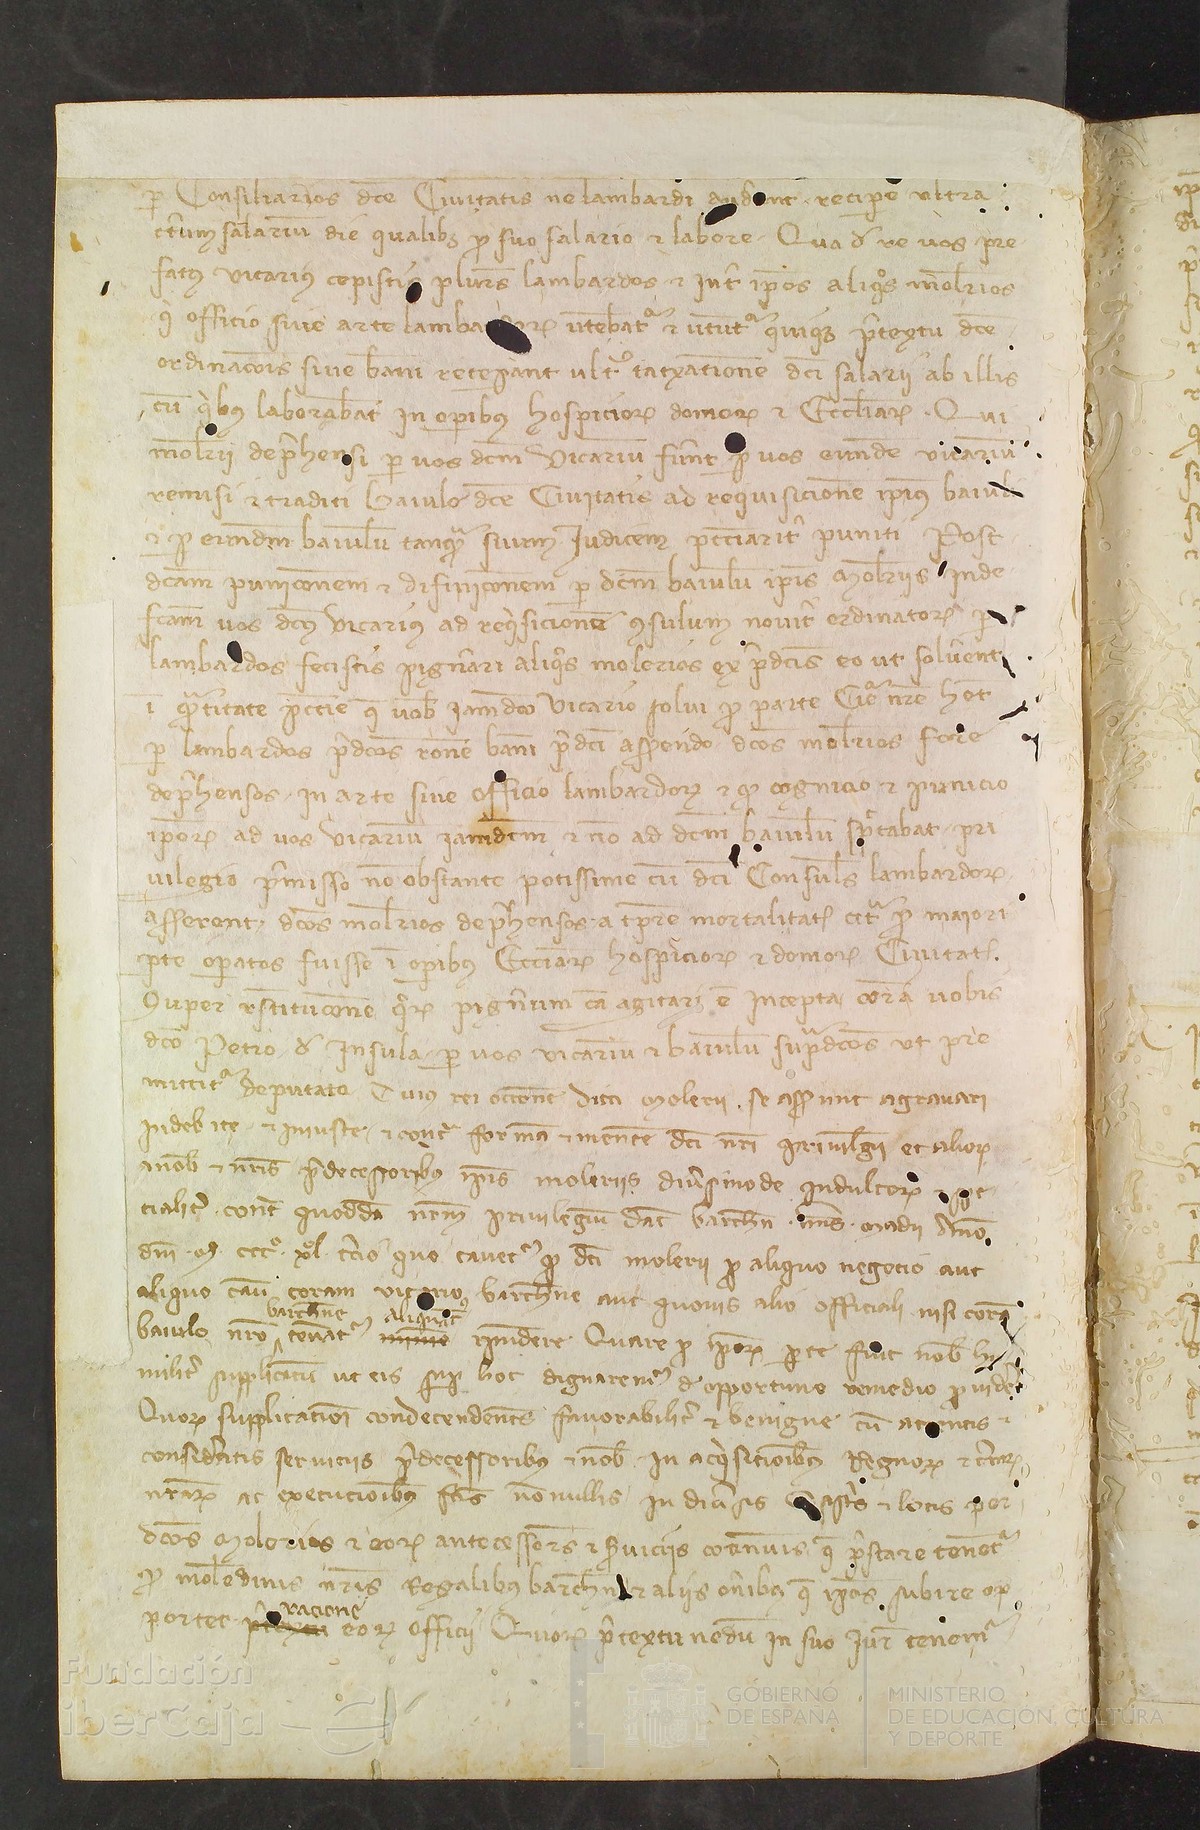 p Consiliarios dce Civitatis ne lambardi audeant recipe ultra
certum salariu die qualibz p suo salario et labore. Qua de re vos pre
fatus vicarius cepistis plures lambardos et Int ipos aliqos molerios
q officio sive arte lambardor utebat et utunt quiqz ptextu dce
ordinacois sive bani recepant ultra taxatione dci salarii ab illis
cu qibus laborabat in opibus hospicior domor et Eccliar. Qui
molerii dephensi p vos dcm Vicariu funt p vos eunde vicariu
remisi et traditi baiulo dce Civitatis ad requisicione ipius baiuli
et p eundm baiulu tanqa suum Judicem puniti Post
dcam punicionem et difinicionem p dcm baiulu ipis Molriis Inde
fcam vos dcus vicarius ad reqisicione consulum novit ordinator p
lambardos fecistis pignrari aliqos molerios ex pdcis eo ut solvent
i qatitate q vob Jamdco Vicario solvi p parte Cie nre het
p lambardos pdcos rone bani pdci asserendo dcos molrios fore
dephensos in arte sive officio lambardorz et qd cognicio et punicio
ipor ad vos Vicariu iamdcm et no ad dcm baiulu spectabat pri
vilegio pmisso no obstante potissime cu dci Consules lambardor
asserent dcos molrios dephensos a tpre mortalitat cit p maiori
pte opatos fuisse i opibus Ecciar hospicior et domor Civitat.
Super restitucione qor pignum ca agitarz e Incepta cora vobis
dco Petro de Insula p vos vicariu et baiulu supadcos ut pre
mittit deputato Cuius rei occone dicti Molerii se asserunt agravari
indebite et iniuste et cont forma et mente dci nri privilegii et alior
a nob et nris pdecessoribus ipis moleriis diversimode Indultor et spe
cialit cont quodda nrm privilegiu dat barchn Madii Anno
dni M ccc xl tcio quo cavet qd dci molerii p aliquo negocio aut
aliquo casu coram vicario barchne aut quovis alio officiali nisi cora
barchne aliquat
baiulo nro tenant respondere Quare p ipor pte fuit nob hu
milit supplicatu ut eis sup hoc dignaremur de opportuno remedio pvider
Quor supplicationi condecendents favorabilit et benigne cu attentis et
consideratis serviciis pdecessoribus et nob in acqisitioibus Regnor et terrar
nrar ac execucioibus fcis nonullis in divsis Castris et locis per
dcos Molerios et eor antecessors et serviciis continuis q pstare tenent
p molendinis nris Regalibus barchn et aliis oneribus q ipos subire op
racione
portet eorz officii Quor ptextu nedu in suo Jure tenemur
Fundación
iberCaja
GOBIERNO
DE ESPAÑA
MINISTERIO
DE EDUCACIÓN, CULTURA
Y DEPORTE